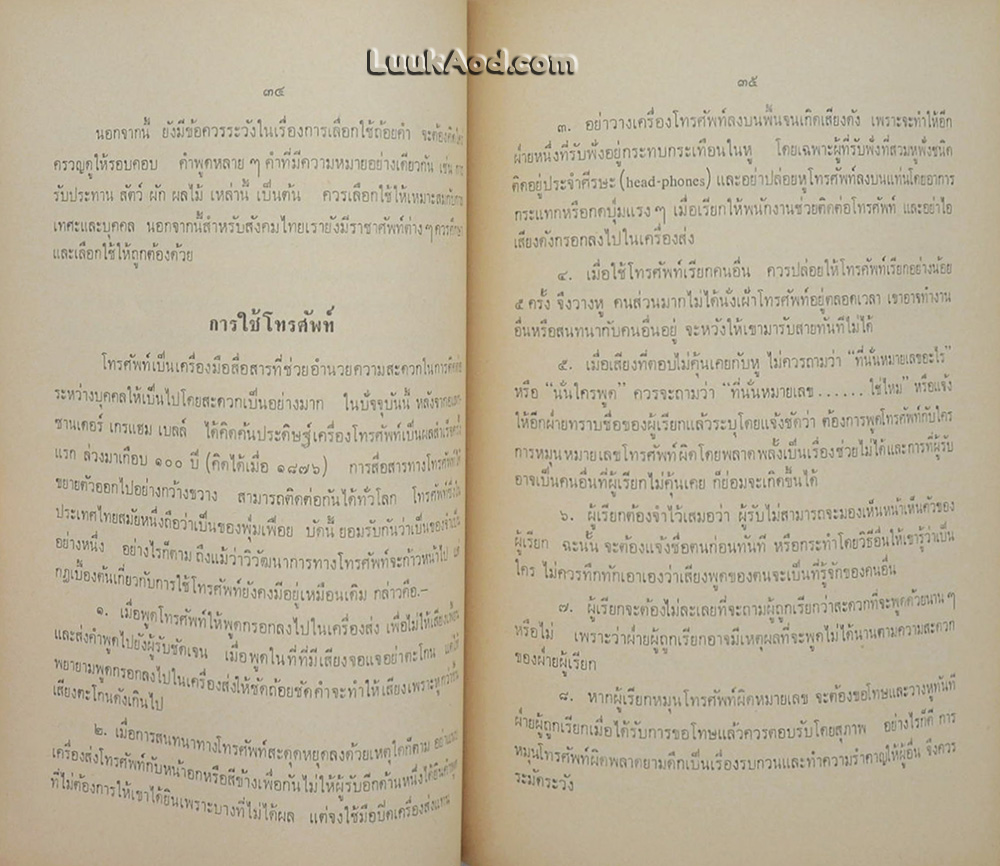 LuukAod.com
๓๔
นอกจากนี้ ยังมีข้อควรระวังในเรื่องการเลือกใช้ถ้อยคำ จะต้อง
ครวญดูให้รอบคอบ คำพูดหลาย ๆ คำที่มีความหมายอย่างเดียวกัน เช่น
รับประทาน สัตว์ ผัก ผลไม้ เหล่านี้ เป็นต้น ควรเลือกใช้ให้เหมาะสมกับ
เทศะและบุคคล นอกจากนี้สำหรับสังคมไทยเรายังมีราชาศัพท์ต่าง ๆ ควรศึกษา
และเลือกใช้ให้ถูกต้องด้วย
การใช้โทรศัพท์
โทรศัพท์เป็นเครื่องมือสื่อสารที่ช่วยอำนวยความสะดวกในการ
ระหว่างบุคคลให้เป็นไปโดยสะดวกเป็นอย่างมาก ในปัจจุบันนี้ หลังจาก
ซานเดอร์ เกรแฮม เบลล์ ได้คิดค้นประดิษฐ์เครื่องโทรศัพท์เป็นผลสำเร็จ
แรก ล่วงมาเกือบ ๑๐๐ ปี (คิดได้เมื่อ ๑๘๗๖) การสื่อสารทางโทรศัพท์ได้
ขยายตัวออกไปอย่างกว้างขวาง สามารถติดต่อกันได้ทั่วโลก โทรศัพท์
ประเทศไทยสมัยหนึ่งถือว่าเป็นของฟุ่มเฟือย บัดนี้ ยอมรับกันว่าเป็นของจำเป็น
อย่างหนึ่ง อย่างไรก็ตาม ถึงแม้ว่าวิวัฒนาการทางโทรศัพท์จะก้าวหน้าไป แต่
กฎเบื้องต้นเกี่ยวกับการใช้โทรศัพท์ยังคงมีอยู่เหมือนเดิม กล่าวคือ.–
๑. เมื่อพูดโทรศัพท์ให้พูดกรอกลงไปในเครื่องส่ง เพื่อไม่ให้เสียงเพี้ยน
และส่งคำพูดไปยังผู้รับชัดเจน เมื่อพูดในที่ที่มีเสียงจอแจอย่าตะโกน
พยายามพูดกรอกลงไปในเครื่องส่งให้ชัดถ้อยชัดคำจะทำให้เสียงเพราะหูกว่า
เสียงตะโกนดังเกินไป
๒. เมื่อการสนทนาทางโทรศัพท์สะดุดหยุดลงด้วยเหตุใดก็ตาม
เครื่องส่งโทรศัพท์กับหน้าอกหรือสีข้างเพื่อกันไม่ให้ผู้รับอีกด้านหนึ่งได้ยินคำพูด
ที่ไม่ต้องการให้เขาได้ยินเพราะบางทีไม่ได้ผล แต่จงใช้มือปิดเครื่องส่งแทน
๓๕
๓. อย่าวางเครื่องโทรศัพท์ลงบนพื้นจนเกิดเสียงดัง เพราะจะทำให้อีก
ฝ่ายหนึ่งที่รับฟังอยู่กระทบกระเทือนในหู โดยเฉพาะผู้ที่รับฟังที่สวมหูฟังชนิด
ติดอยู่ประจำศีรษะ (head-phones) และอย่าปล่อยหูโทรศัพท์ลงบนแท่นโดยอาการ
กระแทกหรือกดปุ่มแรง ๆ เมื่อเรียกให้พนักงานช่วยติดต่อโทรศัพท์ และอย่าไอ
เสียงดังกรอกลงไปในเครื่องส่ง
๔. เมื่อใช้โทรศัพท์เรียกคนอื่น ควรปล่อยให้โทรศัพท์เรียกอย่างน้อย
๕ ครั้ง จึงวางหู คนส่วนมากไม่ได้นั่งเฝ้าโทรศัพท์อยู่ตลอดเวลา เขาอาจทำงาน
อื่นหรือสนทนากับคนอื่นอยู่ จะหวังให้เขามารับสายทันทีไม่ได้
๕. เมื่อเสียงที่ตอบไม่คุ้นเคยกับหู ไม่ควรถามว่า “ที่นั่นหมายเลขอะไร”
หรือ “นั่นใครพูด” ควรจะถามว่า “ที่นั่นหมายเลข ...... ใช่ไหม” หรือแจ้ง
ให้อีกฝ่ายทราบชื่อของผู้เรียกแล้วระบุโดยแจ้งชัดว่า ต้องการพูดโทรศัพท์กับใคร
การหมุนหมายเลขโทรศัพท์ผิดโดยพลาดพลั้งเป็นเรื่องช่วยไม่ได้และการที่ผู้รับ
อาจเป็นคนอื่นที่ผู้เรียกไม่คุ้นเคย ก็ย่อมจะเกิดขึ้นได้
๖. ผู้เรียกต้องจำไว้เสมอว่า ผู้รับไม่สามารถจะมองเห็นหน้าเห็นตัวของ
ผู้เรียก ฉะนั้น จะต้องแจ้งชื่อตนก่อนทันที หรือกระทำโดยวิธีอื่นให้เขารู้ว่าเป็น
ใคร ไม่ควรทึกทักเอาเองว่าเสียงพูดของตนจะเป็นที่รู้จักของคนอื่น
๗. ผู้เรียกจะต้องไม่ละเลยที่จะถามผู้ถูกเรียกว่าสะดวกที่จะพูดด้วยนาน ๆ
หรือไม่ เพราะว่าฝ่ายผู้ถูกเรียกอาจมีเหตุผลที่จะพูดไม่ได้นานตามความสะดวก
ของฝ่ายผู้เรียก
๘. หากผู้เรียกหมุนโทรศัพท์ผิดหมายเลข จะต้องขอโทษและวางหูทันที
ฝ่ายผู้ถูกเรียกเมื่อได้รับการขอโทษแล้วควรตอบรับโดยสุภาพ อย่างไรก็ดี การ
หมุนโทรศัพท์ผิดพลาดยามดึกเป็นเรื่องรบกวนและทำความรำคาญให้ผู้อื่น จึงควร
ระมัดระวัง